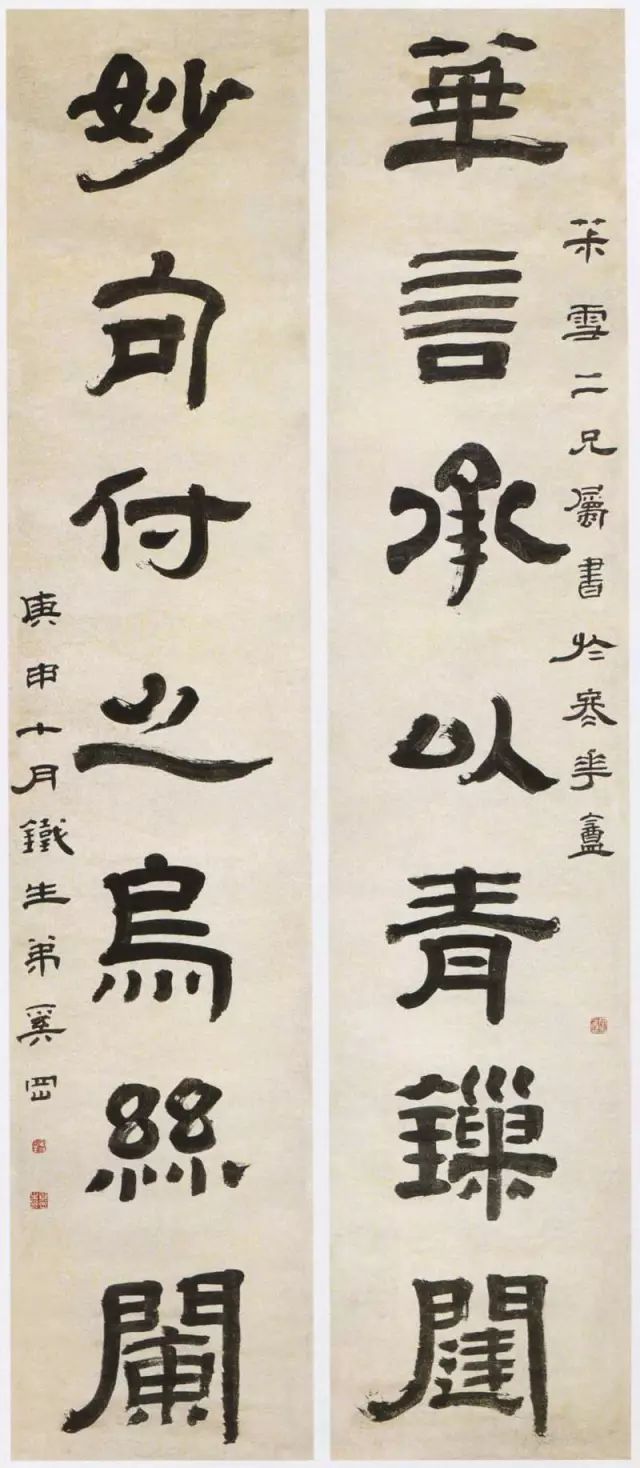 華言承以青鏁闥
雪二兄屬書於冬花盦
妙句付之烏絲闌
庚申十月鐵生弟奚岡